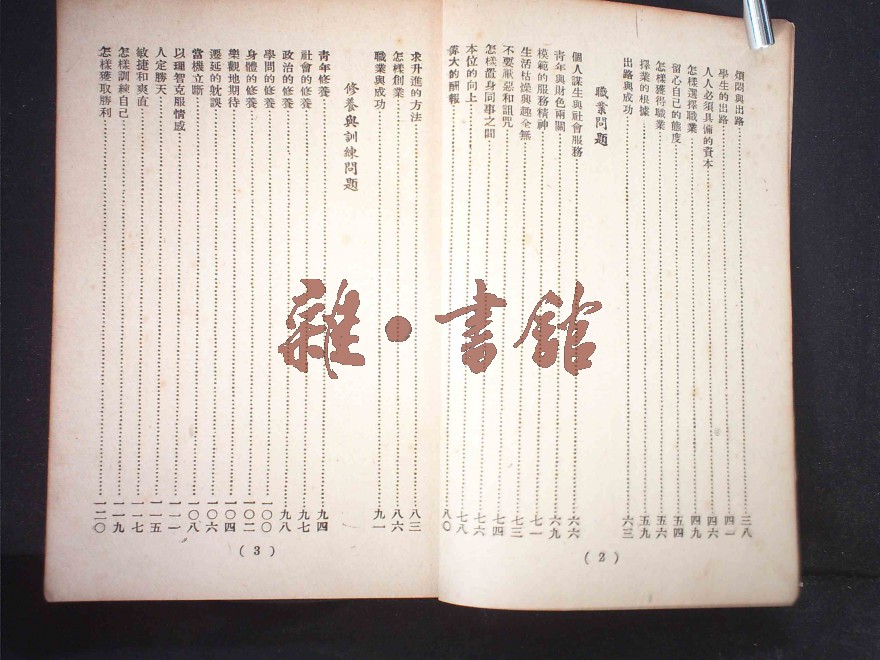 煩悶與出路……三八
學生的出路……四一
人人必須具備的資本……四六
怎樣選擇職業……四九
留心自己的態度……五四
怎樣獲得職業……五六
擇業的根據……五九
出路與成功……六三
職業問題
個人謀生與社會服務……六六
青年與財色兩關……六九
模範的服務精神……七一
生活枯燥興趣全無……七三
不要厭惡和詛咒……七四
怎樣置身同事之間……七六
本位的向上……七八
偉大的酬報……八〇
(2)
求升進的方法……八三
怎樣創業……八六
職業與成功……九一
修養與訓練問題
青年修養……九四
社會的修養……九七
政治的修養……九八
學問的修養……一〇〇
身體的修養……一〇二
樂觀地期待……一〇四
遷延的躭誤……一〇六
當機立斷……一〇八
以理智克服情感……一一一
人定勝天……一一五
敏捷和爽直……一一七
怎樣訓練自己……一一九
怎樣獲取勝利……一二〇
(3)
雜·書館